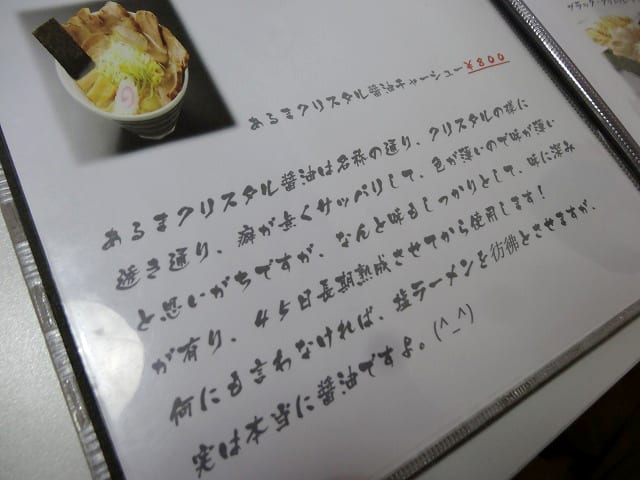 あるまクリスタル醤油チャーシュー¥800
あるまクリスタル醤油は名称の通り、クリスタルの様に
透き通り、癖が無くサッパリして、色が薄いので味が薄い
と思いがちですが、なんと味もしっかりとして、味に深み
が有り、45日長期熟成させてから使用します!
何にも言わなければ、塩ラーメンを彷彿とさせますが、
実は本当に醤油ですよ。(^_^)